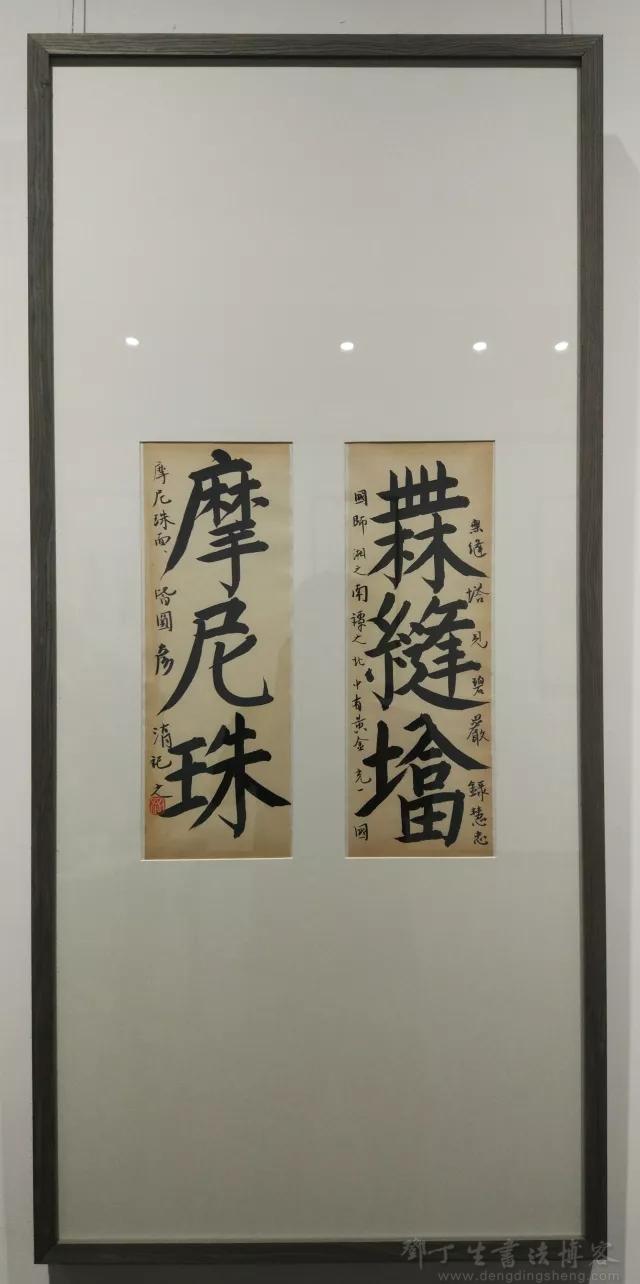 無縫塔見碧巖錄慧忠
橆縫墖
國師湘之南譚之北中有黃金充一國
摩尼珠
摩尼珠面々皆圓彥
記之
鄧丁生書法博客
www.dengdingsheng.com